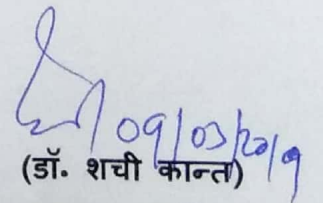 09/03/2019
(डॉ. शची कान्त)